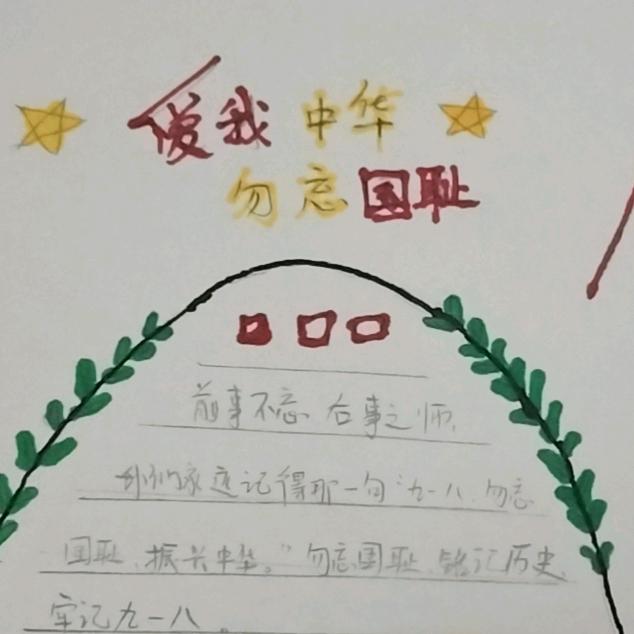 爱我中华
勿忘国耻
前事不忘 后事之师,
我们永远记得那一句"九一八、勿忘
国耻、振兴中华。"勿忘国耻、铭记历史、
牢记九一八。